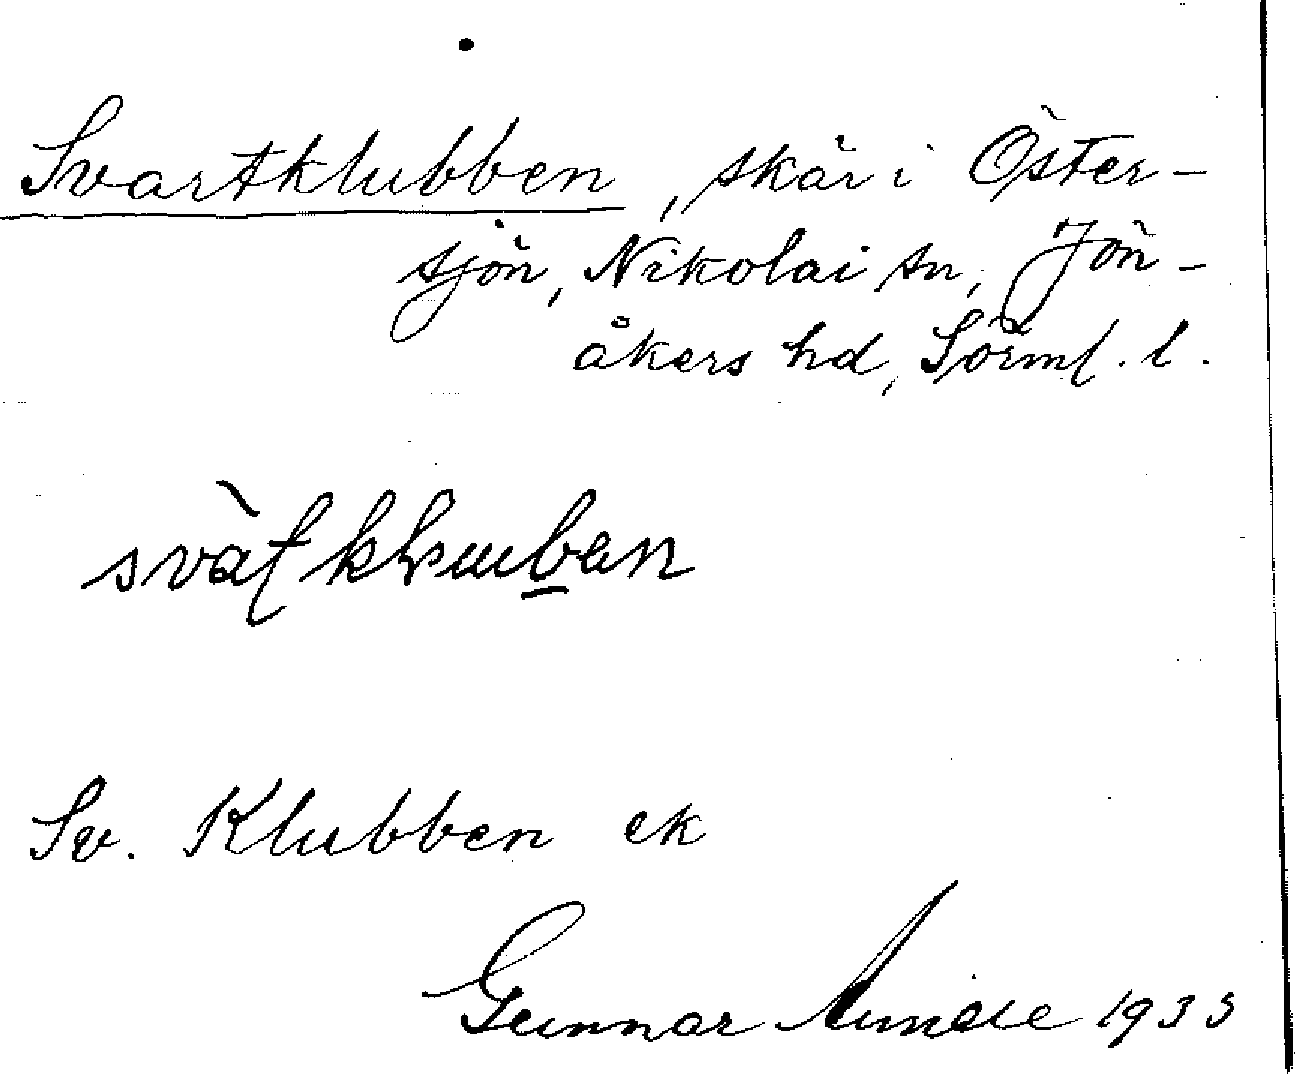 Svartklubben, skär i Öster-
sjön, Nikolai sn, Jön-
åkers hd, Sörml. l.
Sv. Klubben ek
Gunnar 1933